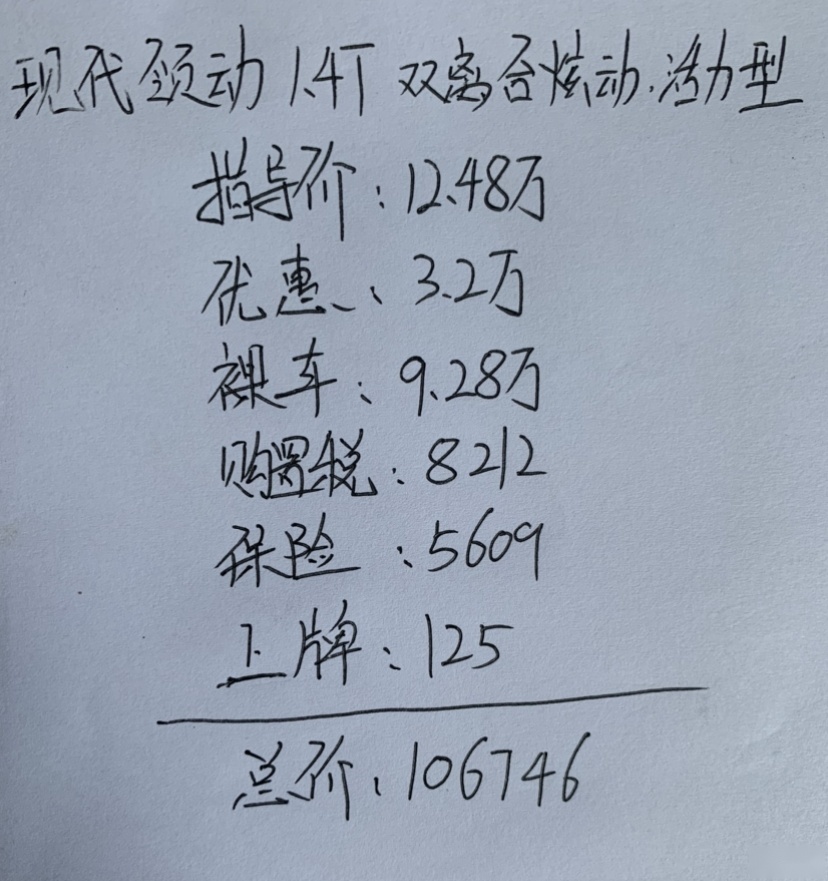 现代领动1.4T 双离合炫动.活力型
指导价:12.48万
优惠、3.2万
裸车:9.28万
购置税:8212
保险:5609
上牌:125
总价:106746